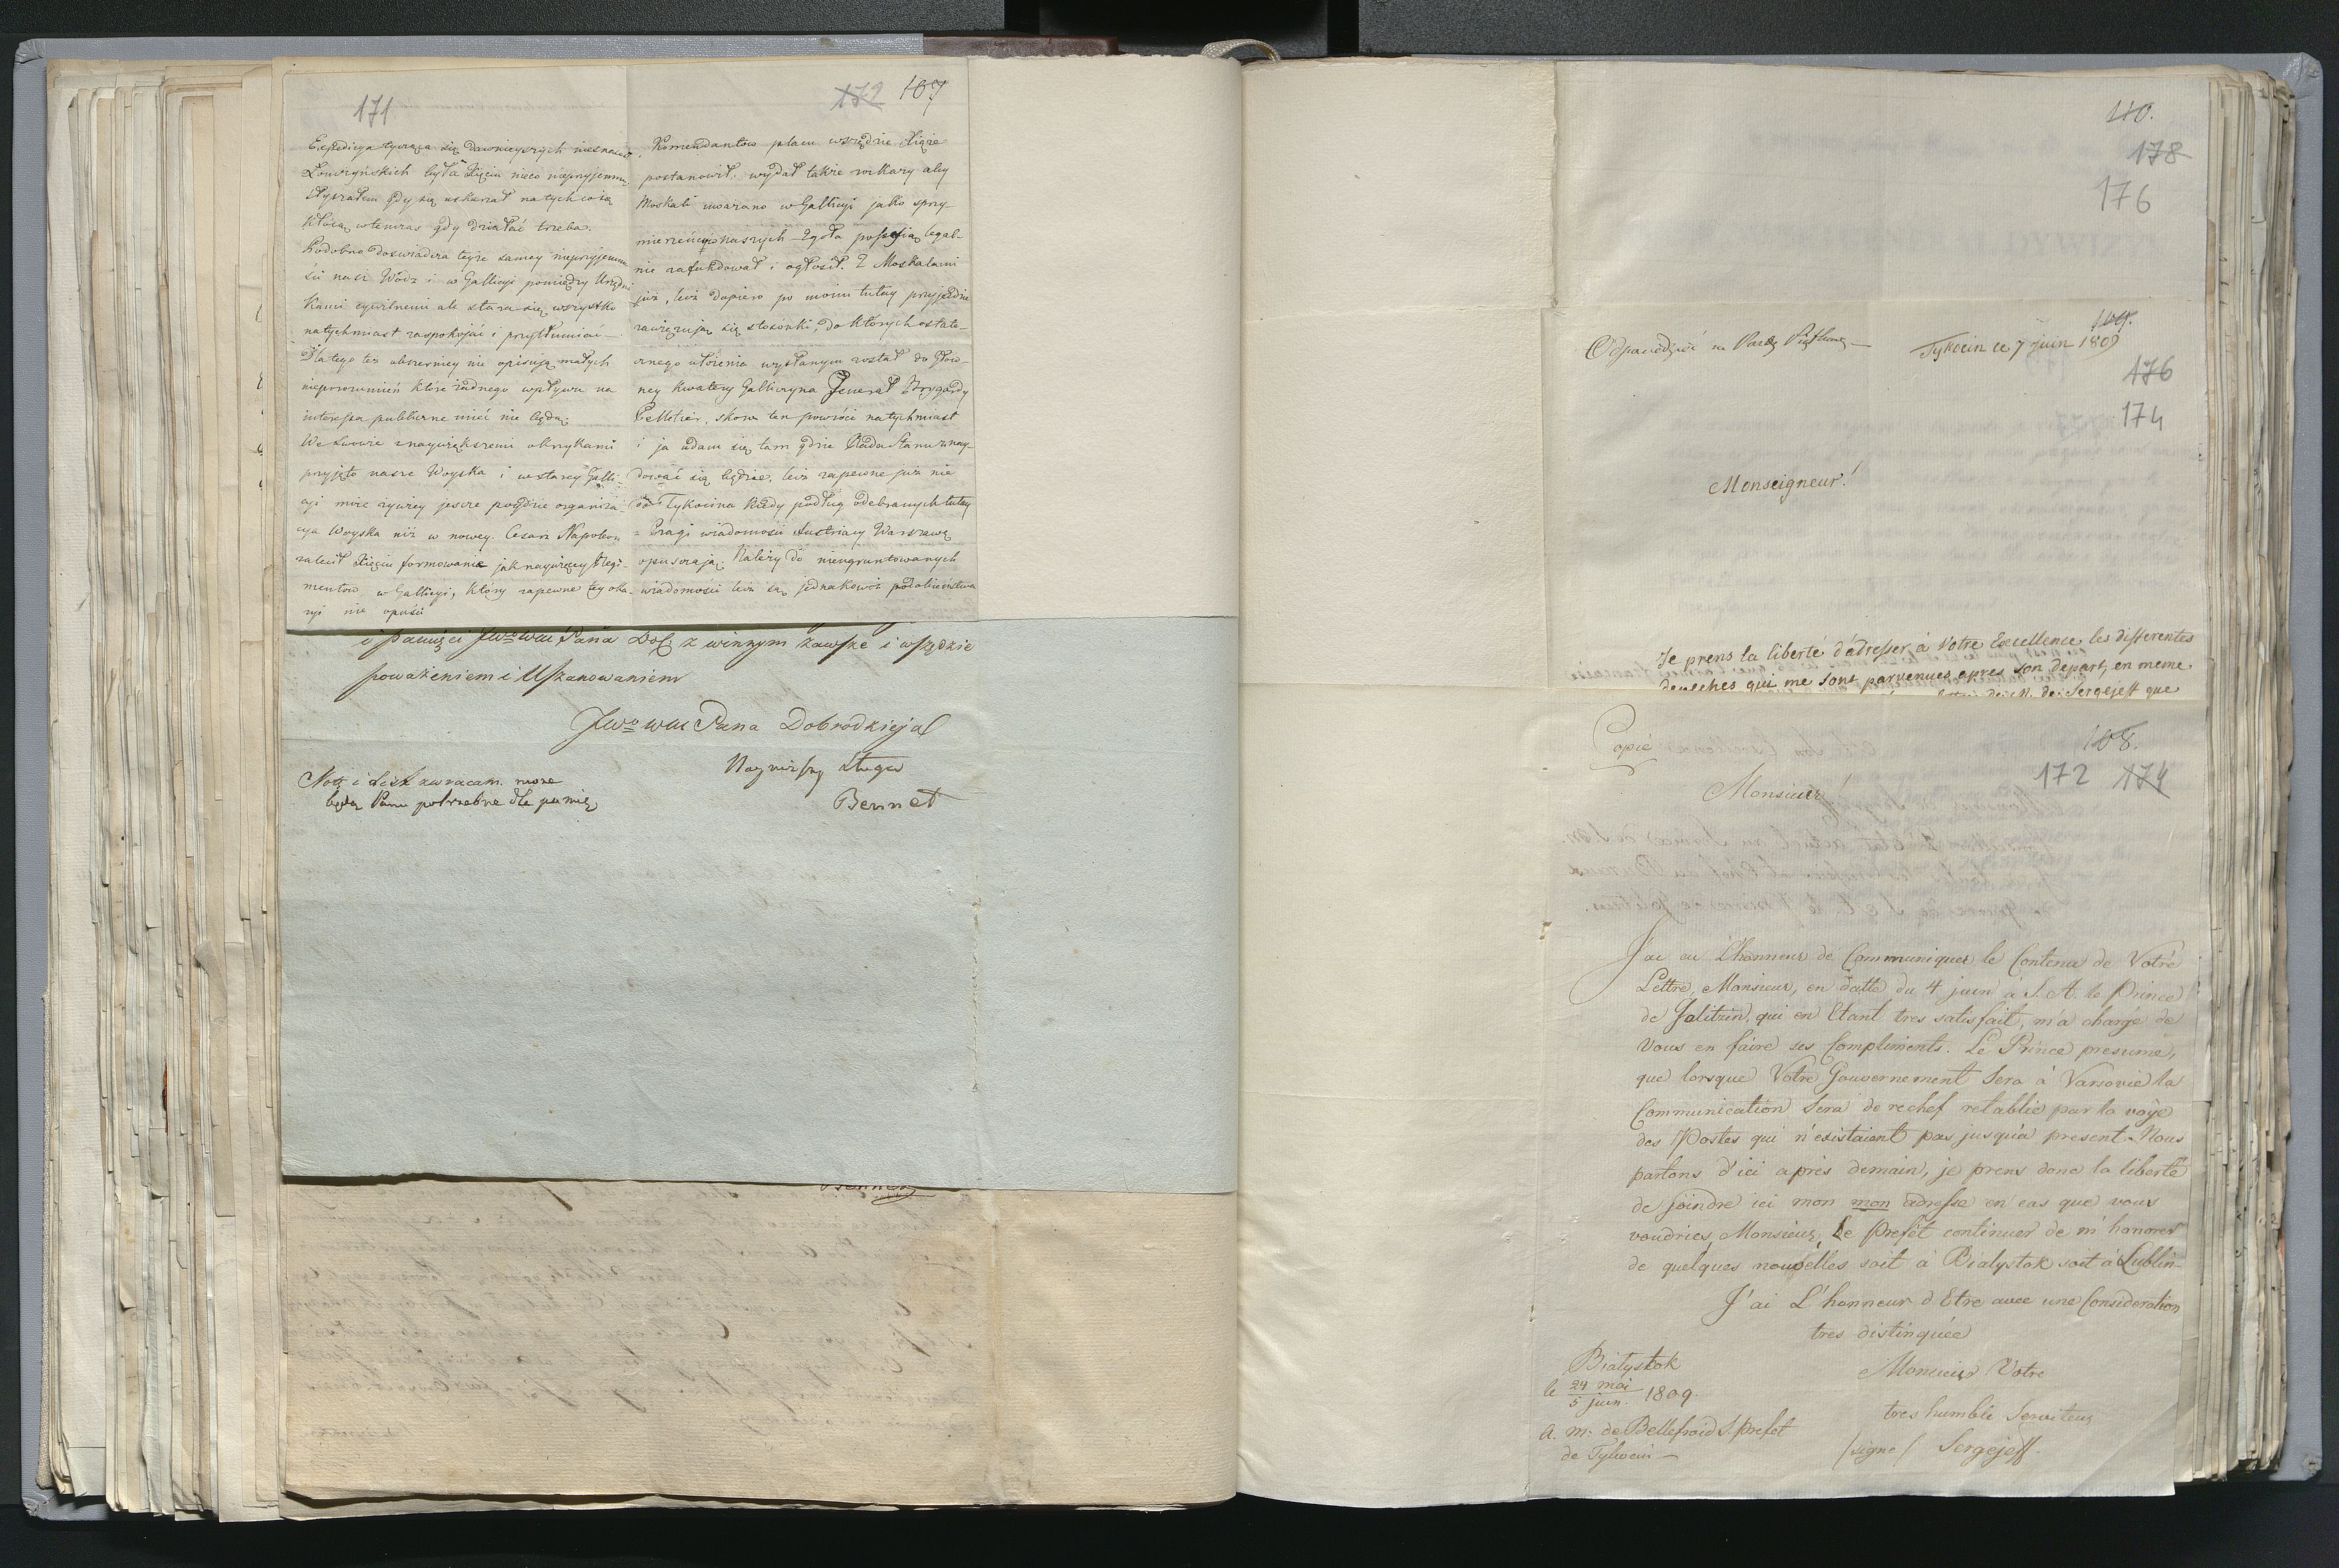 171
172 107
Expedycya tycząca się dawnieyszych niesnasek
Łomżyńskich była Xięciu nieco nieprzyjemną
słyszałem gdy się uskarżał na tych co się
kłócą wtenczas gdy działać trzeba.
Podobno doświadcza teyże samey nieprzyjemno
ści nasz Wódz i w Gallicyi pomiędzy Urzędni
kami cywilnemi ale stara się wszystko
natychmiast zaspokojać i przytłumiać —
Dla tego też obszerniey nie opisuję małych
nieporozumień które żadnego wpływu na
interessa publiczne mieć nie będą.
We Lwowie z naywiększemi okrzykami
przyjęto nasze Woyska i w starey Galli-
cyi żywiey jescze poydzie organiza-
cya Woyska niż w nowey. Cesarz Napoleon
zalecił Xięciu formowanie jak naywięcey Regi-
mentów w Gallicyi, który zapewne tey oka-
zyi nie opuści
Komendantów placu wszędzie Xiąże
postanowił. wydał także rozkazy aby
Moskali uważano w Gallicyi jako sprzy-
mierzeńców naszych — Zgoła possessią legal-
nie zafundował i ogłosił. Z Moskalami
już, lecz dopiero po moim tutay przyjeździe
zawięzują się stosunki, do których ostate-
cznego ułożenia wysłanym został do Głów-
ney kwatery Galliczyna Jenerał Brygady
Pelletier, skoro ten powróci natychmiast
i ja udam się tam gdzie Rada Stanu znay-
dować się będzie, lecz zapewne już nie
do Tykocina kiedy podług odebranych tutay
z Pragi wiadomości Austriacy Warszawę
opuszczają. Należy do nieugruntowanych
wiadomości lecz są jednakowoż podobieństwa
i pamięci JWo WM Pana Dob z winnym zawsze i wszędzie
poważeniem i Uszanowaniem
JWo WM Pana Dobrodzieja
Nayniższy Sługa
Bennet
Notę i List zwracam. może
będą Panu potrzebne dla pamię
Bennet
110.
178
176
109.
Odpowiedzieć na
Tykocin ce 7 Juin 1809
176
174
Monseigneur!
Je prens la liberté d'adresser à Votre Excellence les differentes
depeches qui me sont parvenues apres son depart, en meme
de M. de Sergejeff que
Copie
108.
172 174
Monsieur!
J'ai eu L'honneur de Communiquer le Contenu de Votre
Lettre, Monsieur, en datte du 4 juin a S. A. le Prince
de Galitzin, qui en Etant tres satisfait, m'a chargé de
Vous en faire ses Compliments. Le Prince presume,
que lorsque Votre Gouvernement sera à Varsovie la
Communication sera de rechef retablie par la voye
des Postes qui n'existaient pas jusqu'a present. Nous
partons d'ici après demain, je prens donc la liberté
de joindre ici mon mon adresse en cas que vous
voudries Monsieur, Le Prefét continuer de m'honorer
de quelques nouvelles soit à Bialystok soit à Lublin-
J'ai L'honneur d'Etre avec une Consideration
tres distinquée
Bialystok
le 24 mai / 5 juin. 1809.
Monsieur Votre
tres humble Serviteur
a. M. de Bellefroid S. prefet
de Tykocin —
/signe/ Sergejeff.